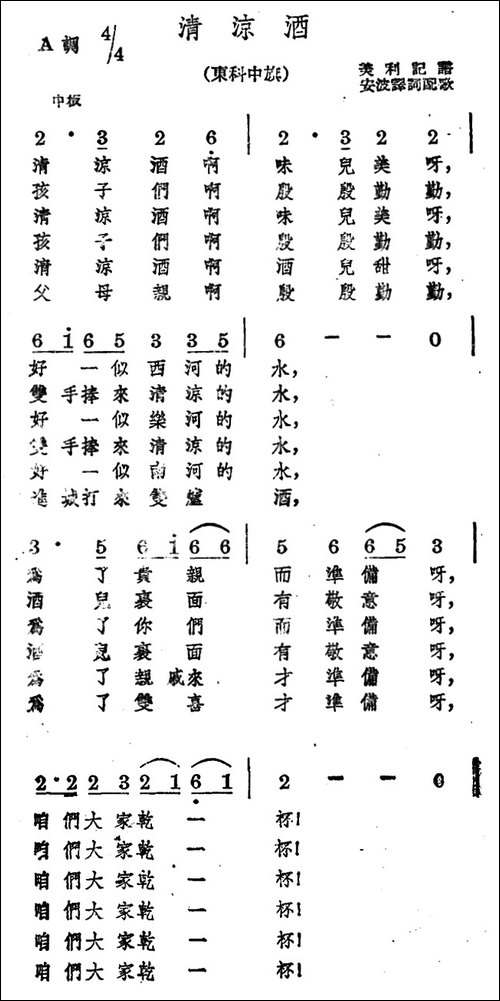 清涼酒
A調 4/4
(東科中旗)
美利記譜
安波譯詞配歌
中板
2 · 3 2 6 | 2 · 3 2 2 |
清 涼 酒 啊 味 兒 美 呀,
孩 子 們 啊 殷 殷 勤 勤,
清 涼 酒 啊 味 兒 美 呀,
孩 子 們 啊 殷 殷 勤 勤,
清 涼 酒 啊 酒 兒 甜 呀,
父 母 親 啊 殷 殷 勤 勤,
6 i 6 5 3 3 5 | 6 — — 0 |
好 一 似 西 河 的 水,
雙 手 捧 來 清 涼 的 水,
好 一 似 樂 河 的 水,
雙 手 捧 來 清 涼 的 水,
好 一 似 南 河 的 水,
進 城 打 來 雙 爐 酒,
3 · 5 6 i 6 6 | 5 6 6 5 3 |
爲 了 貴 親 而 準 備 呀,
酒 兒 裏 面 有 敬 意 呀,
爲 了 你 們 而 準 備 呀,
酒 兒 裏 面 有 敬 意 呀,
爲 了 親 戚 來 才 準 備 呀,
爲 了 雙 喜 才 準 備 呀,
2 · 2 2 3 2 1 6 1 | 2 — — 0
咱 們 大 家 乾 一 杯!
咱 們 大 家 乾 一 杯!
咱 們 大 家 乾 一 杯!
咱 們 大 家 乾 一 杯!
咱 們 大 家 乾 一 杯!
咱 們 大 家 乾 一 杯!